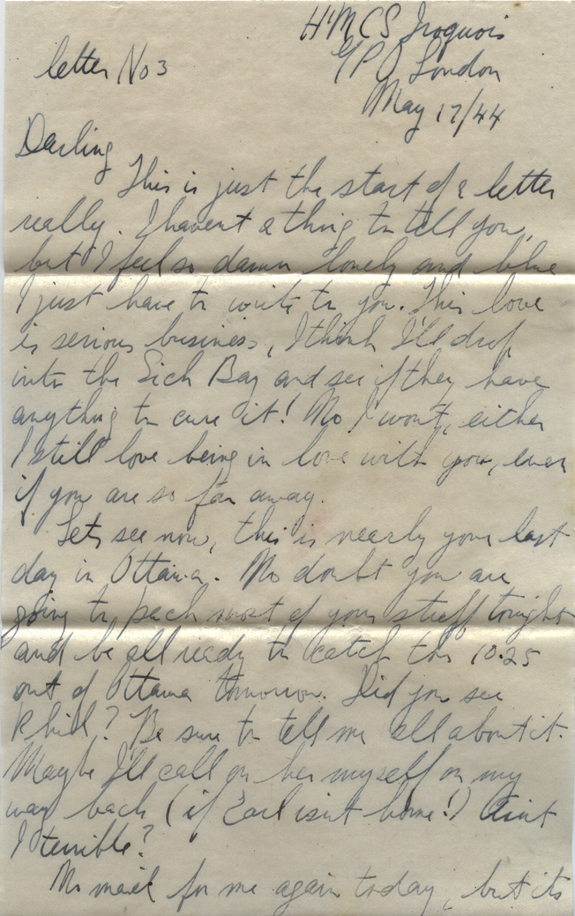 HMCS Iroquois
letter No 3
G/P O London
May 17/44
Darling
This is just the start of a letter
really. I havent a thing to tell you,
but I feel so damn lonely and blue
I just have to write to you. This love
is serious business, I think I'll drop
into the Sick Bay and see if they have
anything to cure it! No I won't, either
I still love being in love with you, even
if you are so far away.
Lets see now, this is nearly your last
day in Ottawa. No doubt you are
going to pack most of your stuff tonight
and be all ready to catch the 10.25
out of Ottawa tomorrow. Did you see
Phil? Be sure to tell me all about it.
Maybe I'll call on her myself on my
way back (if Earl isn't home!) Aint
I terrible?
No mail for me again today, but its